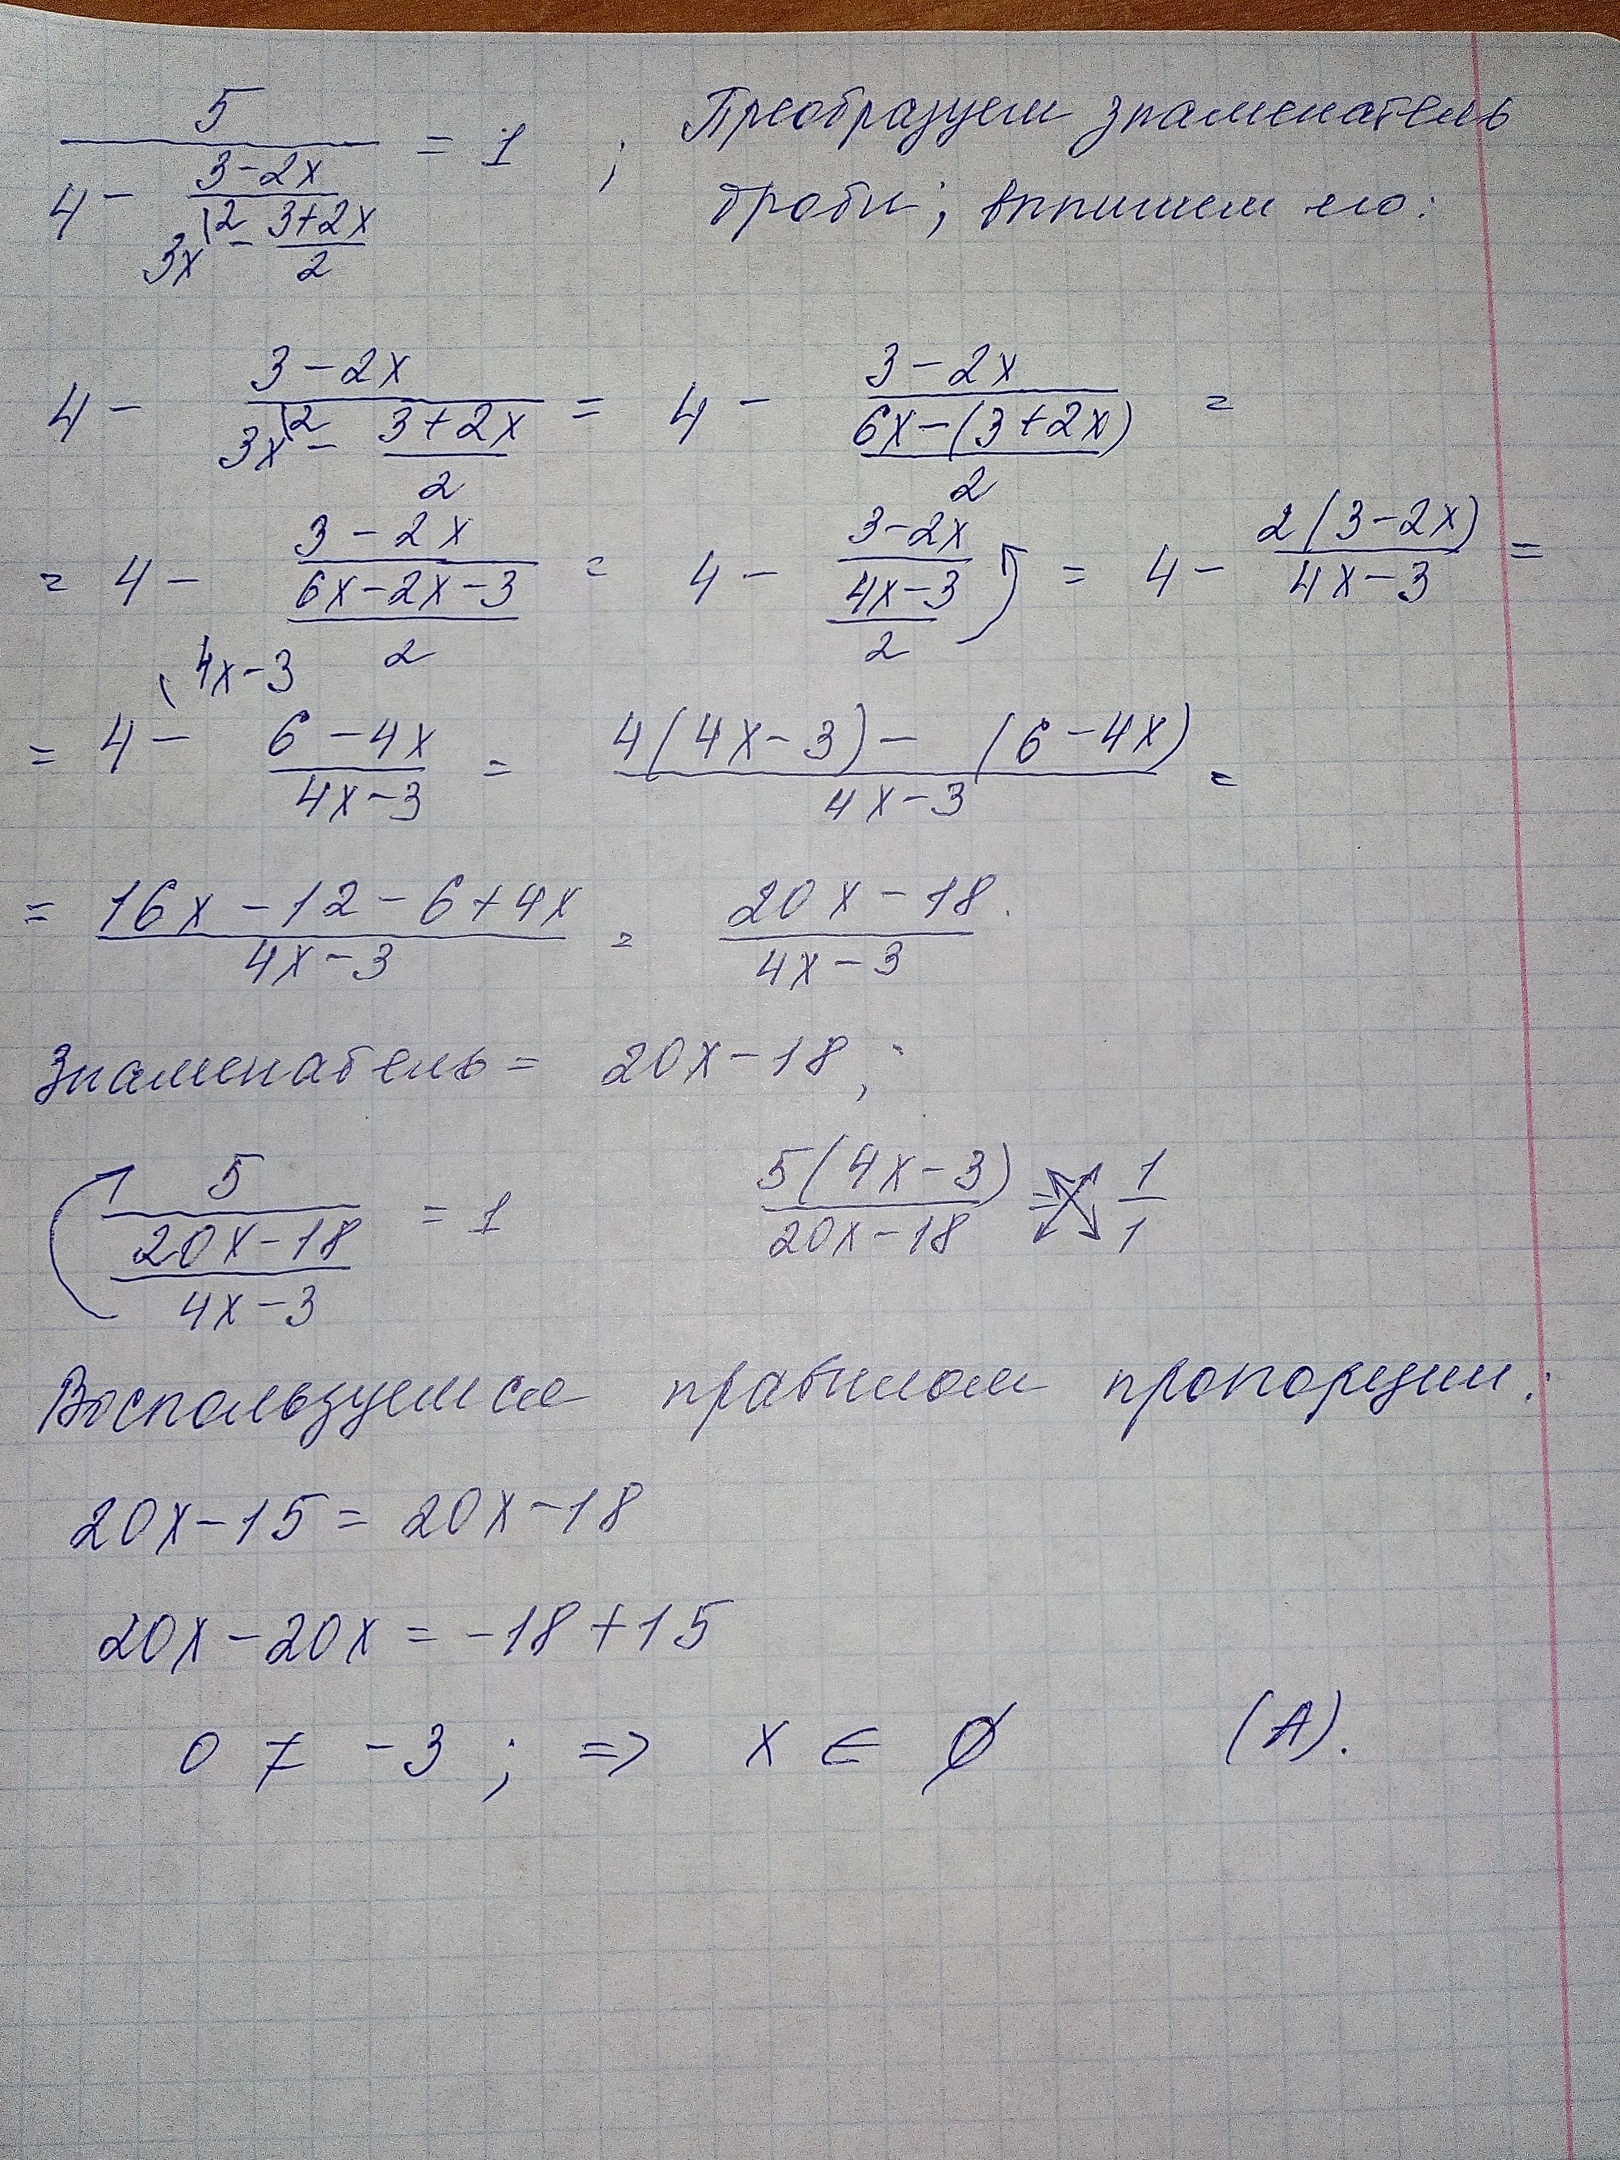 5 / (4 - (3-2x) / (3x\2 - (3+2x)/2)) = 1 ; Преобразуем знаменатель
дроби; впишем его:
4 - (3-2x) / (3x\2 - (3+2x)/2) = 4 - (3-2x) / ((6x-(3+2x))/2) =
= 4 - (3-2x) / ((6x-2x-3)/2) = 4 - (3-2x) / ((4x-3)/2) = 4 - 2(3-2x) / (4x-3) =
= 4\4x-3 - (6-4x) / (4x-3) = (4(4x-3) - (6-4x)) / (4x-3) =
= (16x-12-6+4x) / (4x-3) = (20x-18) / (4x-3).
Знаменатель = 20x-18;
5 / ((20x-18) / (4x-3)) = 1 5(4x-3) / (20x-18) = 1/1
Воспользуемся правилом пропорции:
20x-15 = 20x-18
20x-20x = -18+15
0 ≠ -3 ; => x ∈ ∅ (А).